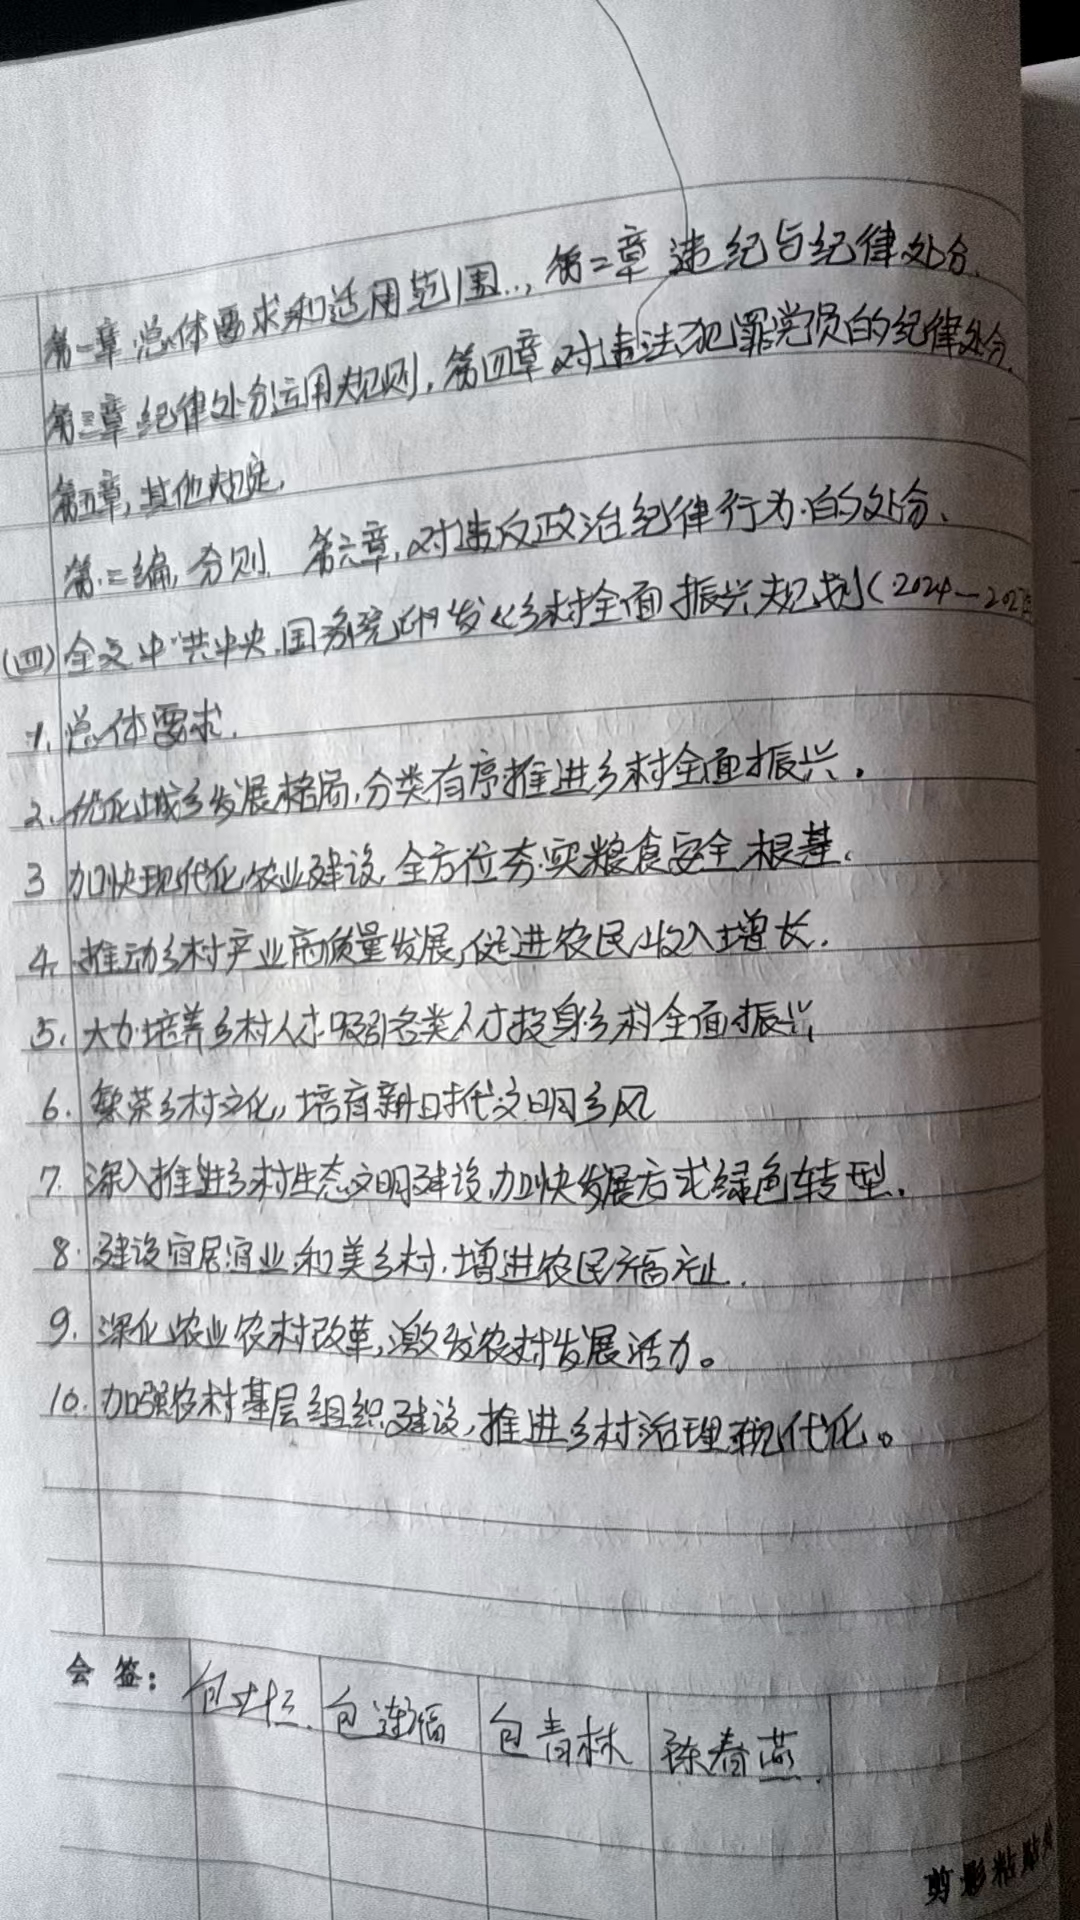 第一章 总体要求和适用范围..，第二章 违纪与纪律处分.
第三章 纪律处分运用规则，第四章 对违法犯罪党员的纪律处分.
第五章，其他规定，
第二编，分则. 第六章，对违反政治纪律行为的处分、
(四) 全文中共中央.国务院印发《乡村全面振兴规划(2024—202
1. 总体要求.
2. 优化城乡发展格局，分类有序推进乡村全面振兴。
3 加快现代化农业建设，全方位夯实粮食安全根基.
4. 推动乡村产业高质量发展，促进农民收入增长.
5. 大力培养乡村人才.吸引各类人才投身乡村全面振兴
6. 繁荣乡村文化，培育新时代文明乡风
7. 深入推进乡村生态文明建设，加快发展方式绿色转型.
8. 建设宜居宜业和美乡村，增进农民福祉.
9. 深化农业农村改革，激发农村发展活力。
10. 加强农村基层组织建设，推进乡村治理现代化。
会 签： 包 包连福 包青林 陈春燕
剪影粘贴